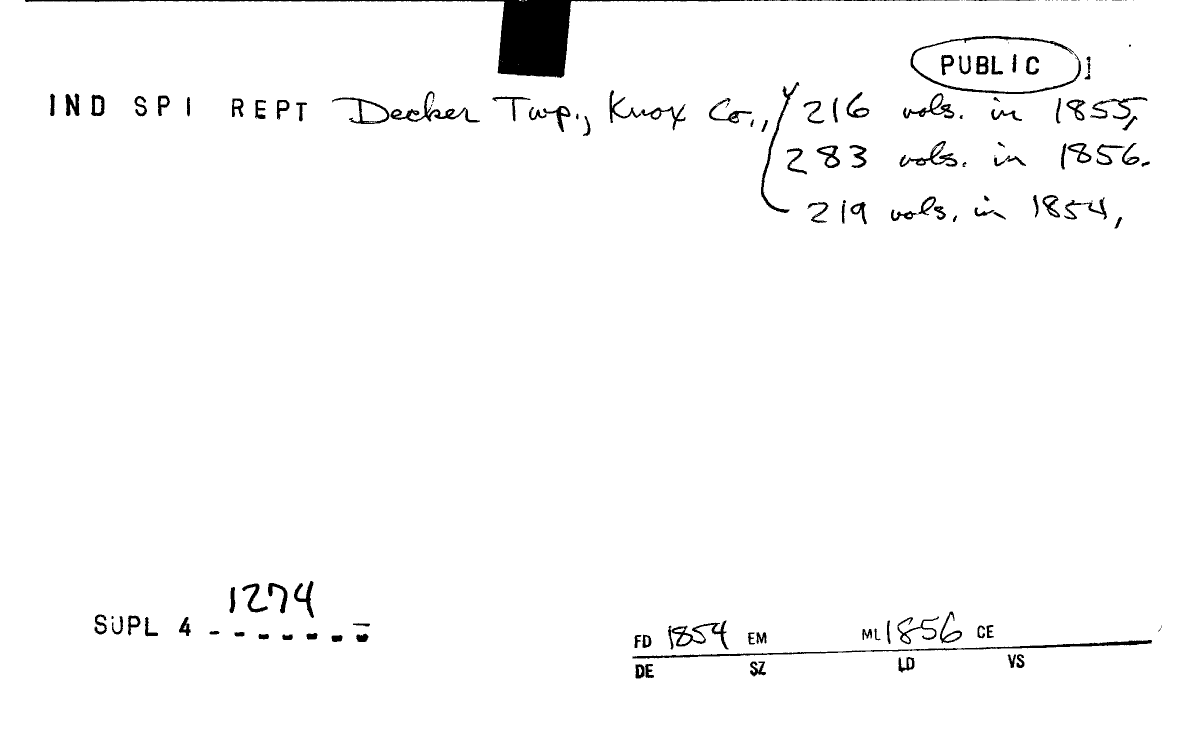 PUBLIC
IND SPI REPT Decker Twp., Knox Co., 216 vols. in 1855,
283 vols. in 1856.
219 vols. in 1854,
1274
SUPL 4 - - - - - - -
FD 1854 EM ML 1856 CE
DE SZ LD VS